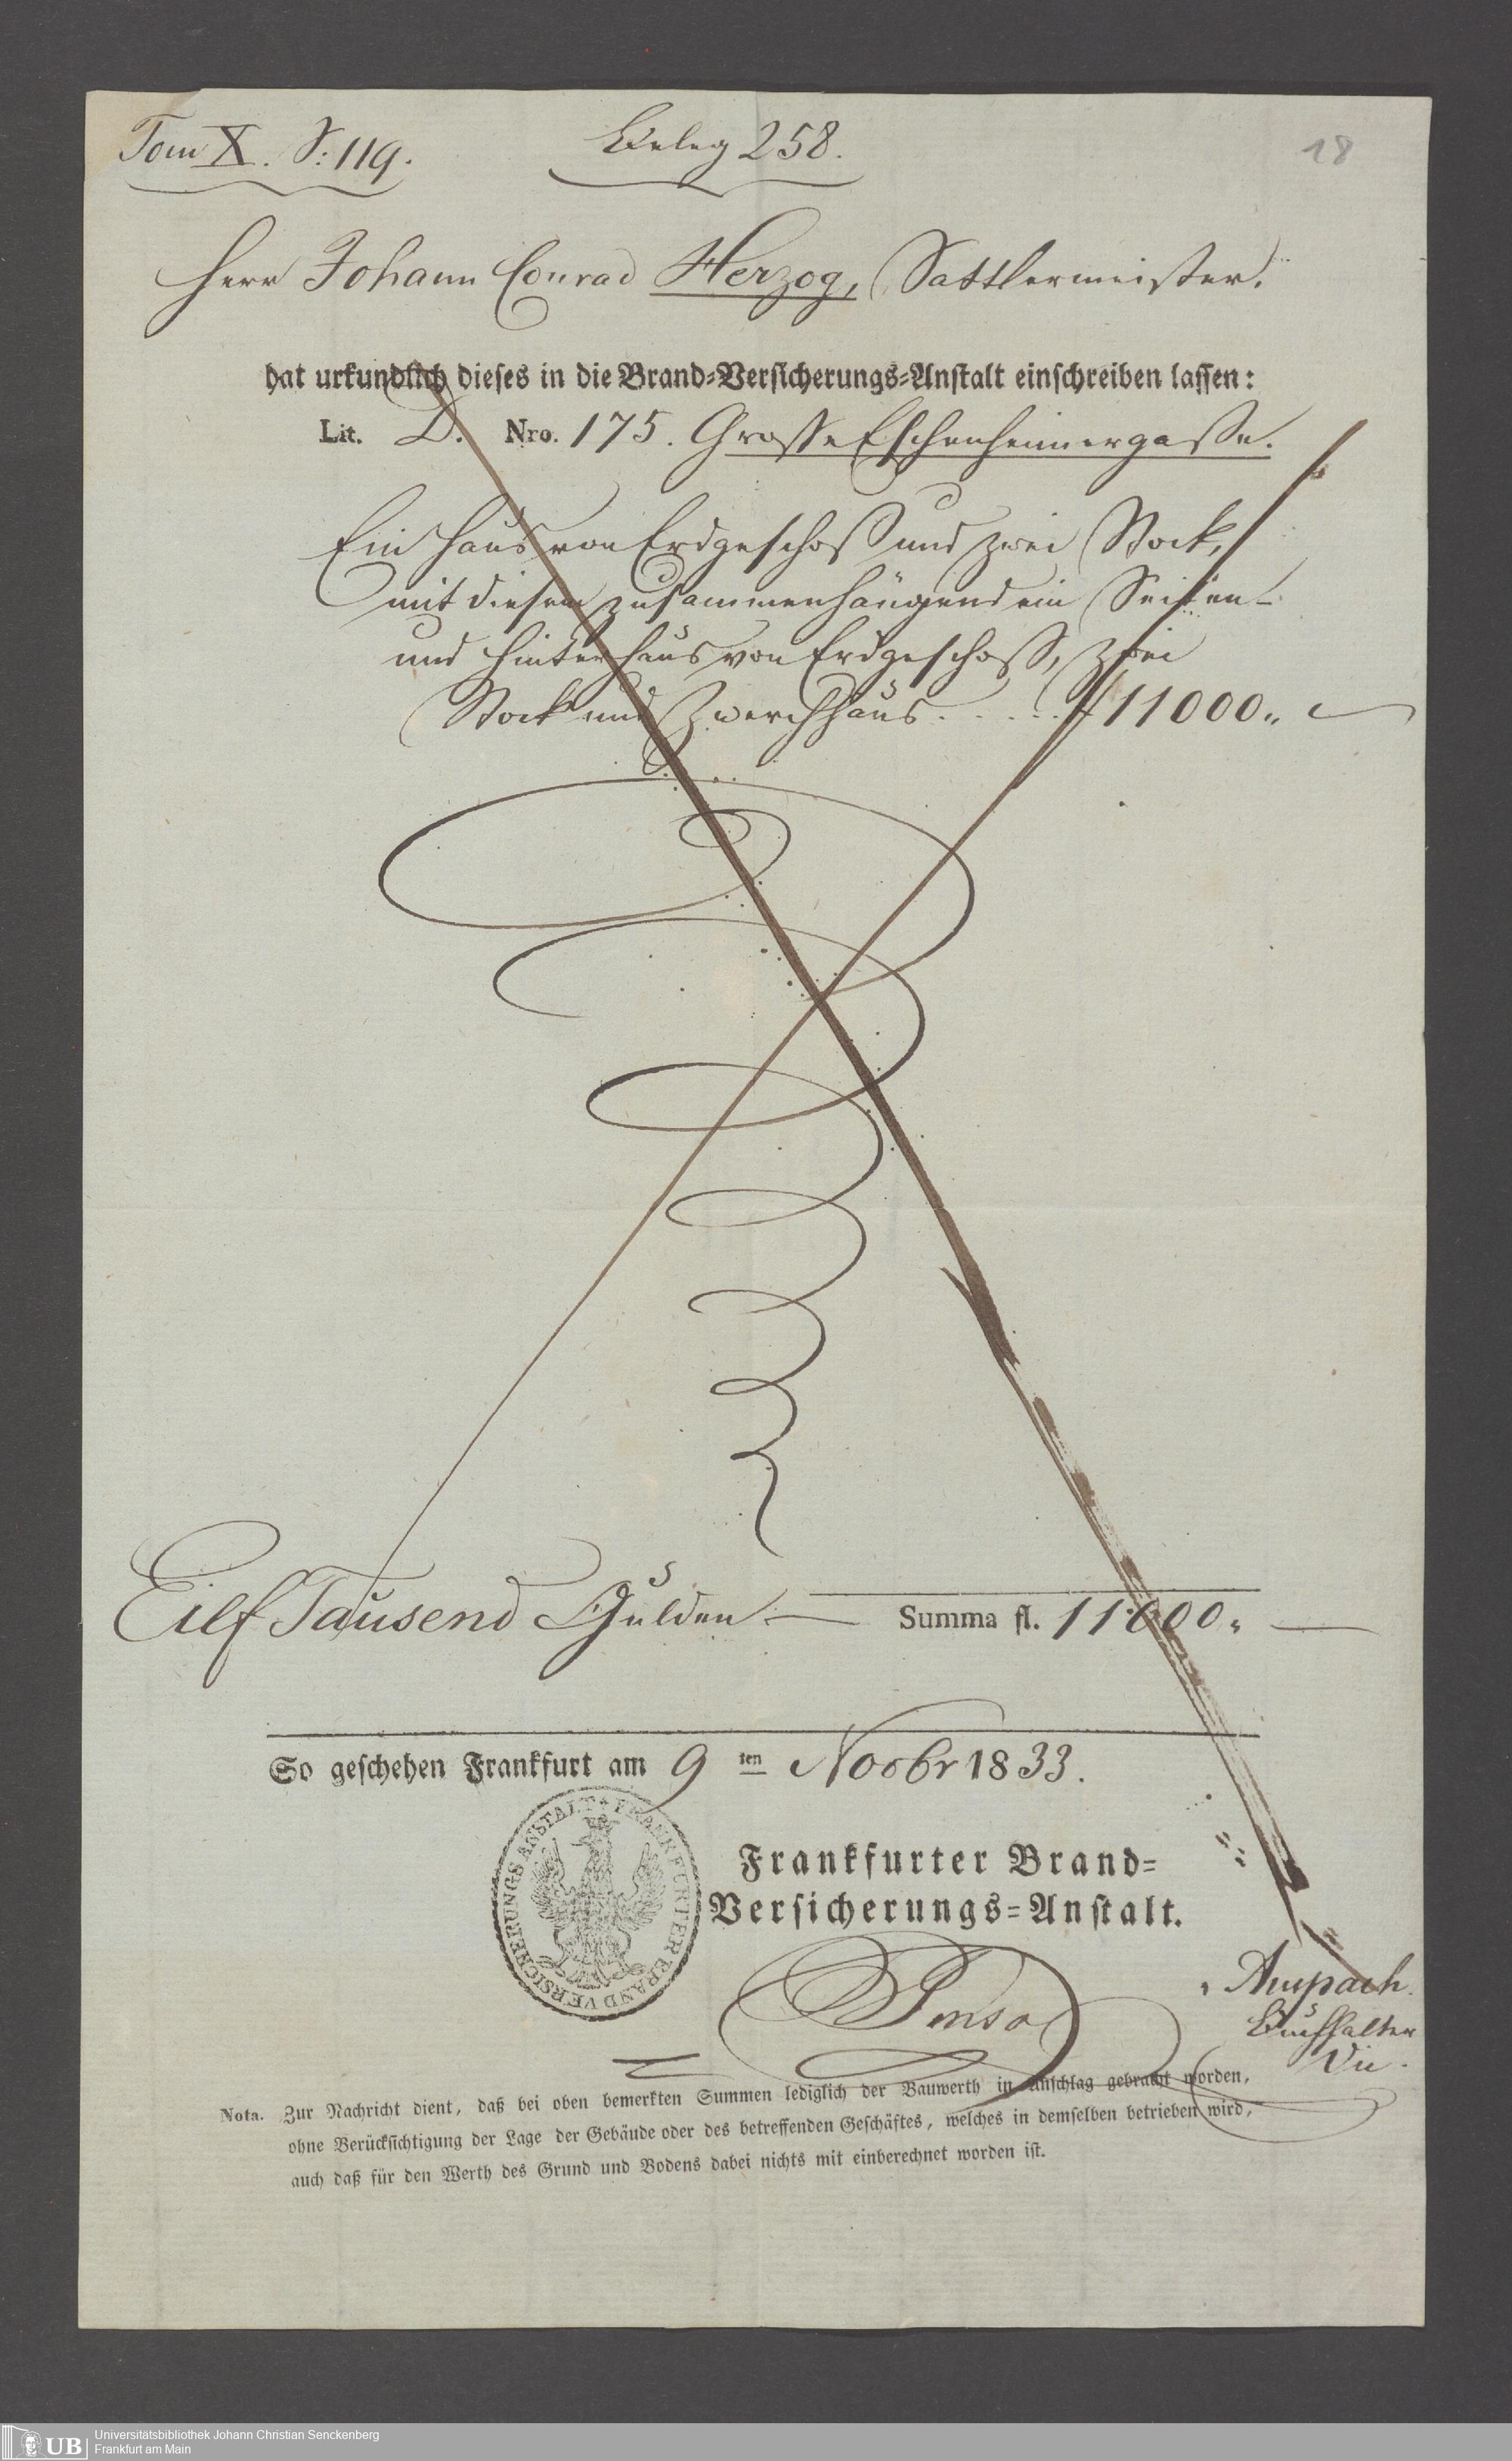 Tom X. S: 119.
Beleg 258.
18
Herr Johann Conrad Herzog, Sattlermeister.
hat urkundlich dieses in die Brand-Versicherungs-Anstalt einschreiben lassen:
Lit. D. Nro. 175. Grosse Eschenheimergasse.
Ein Haus von Erdgeschoß und zwei Stock,
mit diesem zusammenhängend ein Seiten-
und Hinterhaus von Erdgeschoß, zwei
Stock und Zwerchhaus . . . . . f 11000.,
Eilf Tausend Gulden — Summa fl. 11000., —
So geschehen Frankfurt am 9 ten Novbr 1833.
FRANKFURTER BRAND VERSICHERUNGS ANSTALT
Frankfurter Brand-
Versicherungs-Anstalt.
Anspach
Buchhalter
Nota. Zur Nachricht dient, daß bei oben bemerkten Summen lediglich der Bauwerth in Anschlag gebracht worden,
ohne Berücksichtigung der Lage der Gebäude oder des betreffenden Geschäftes, welches in demselben betrieben wird,
auch daß für den Werth des Grund und Bodens dabei nichts mit einberechnet worden ist.
UB Universitätsbibliothek Johann Christian Senckenberg
Frankfurt am Main